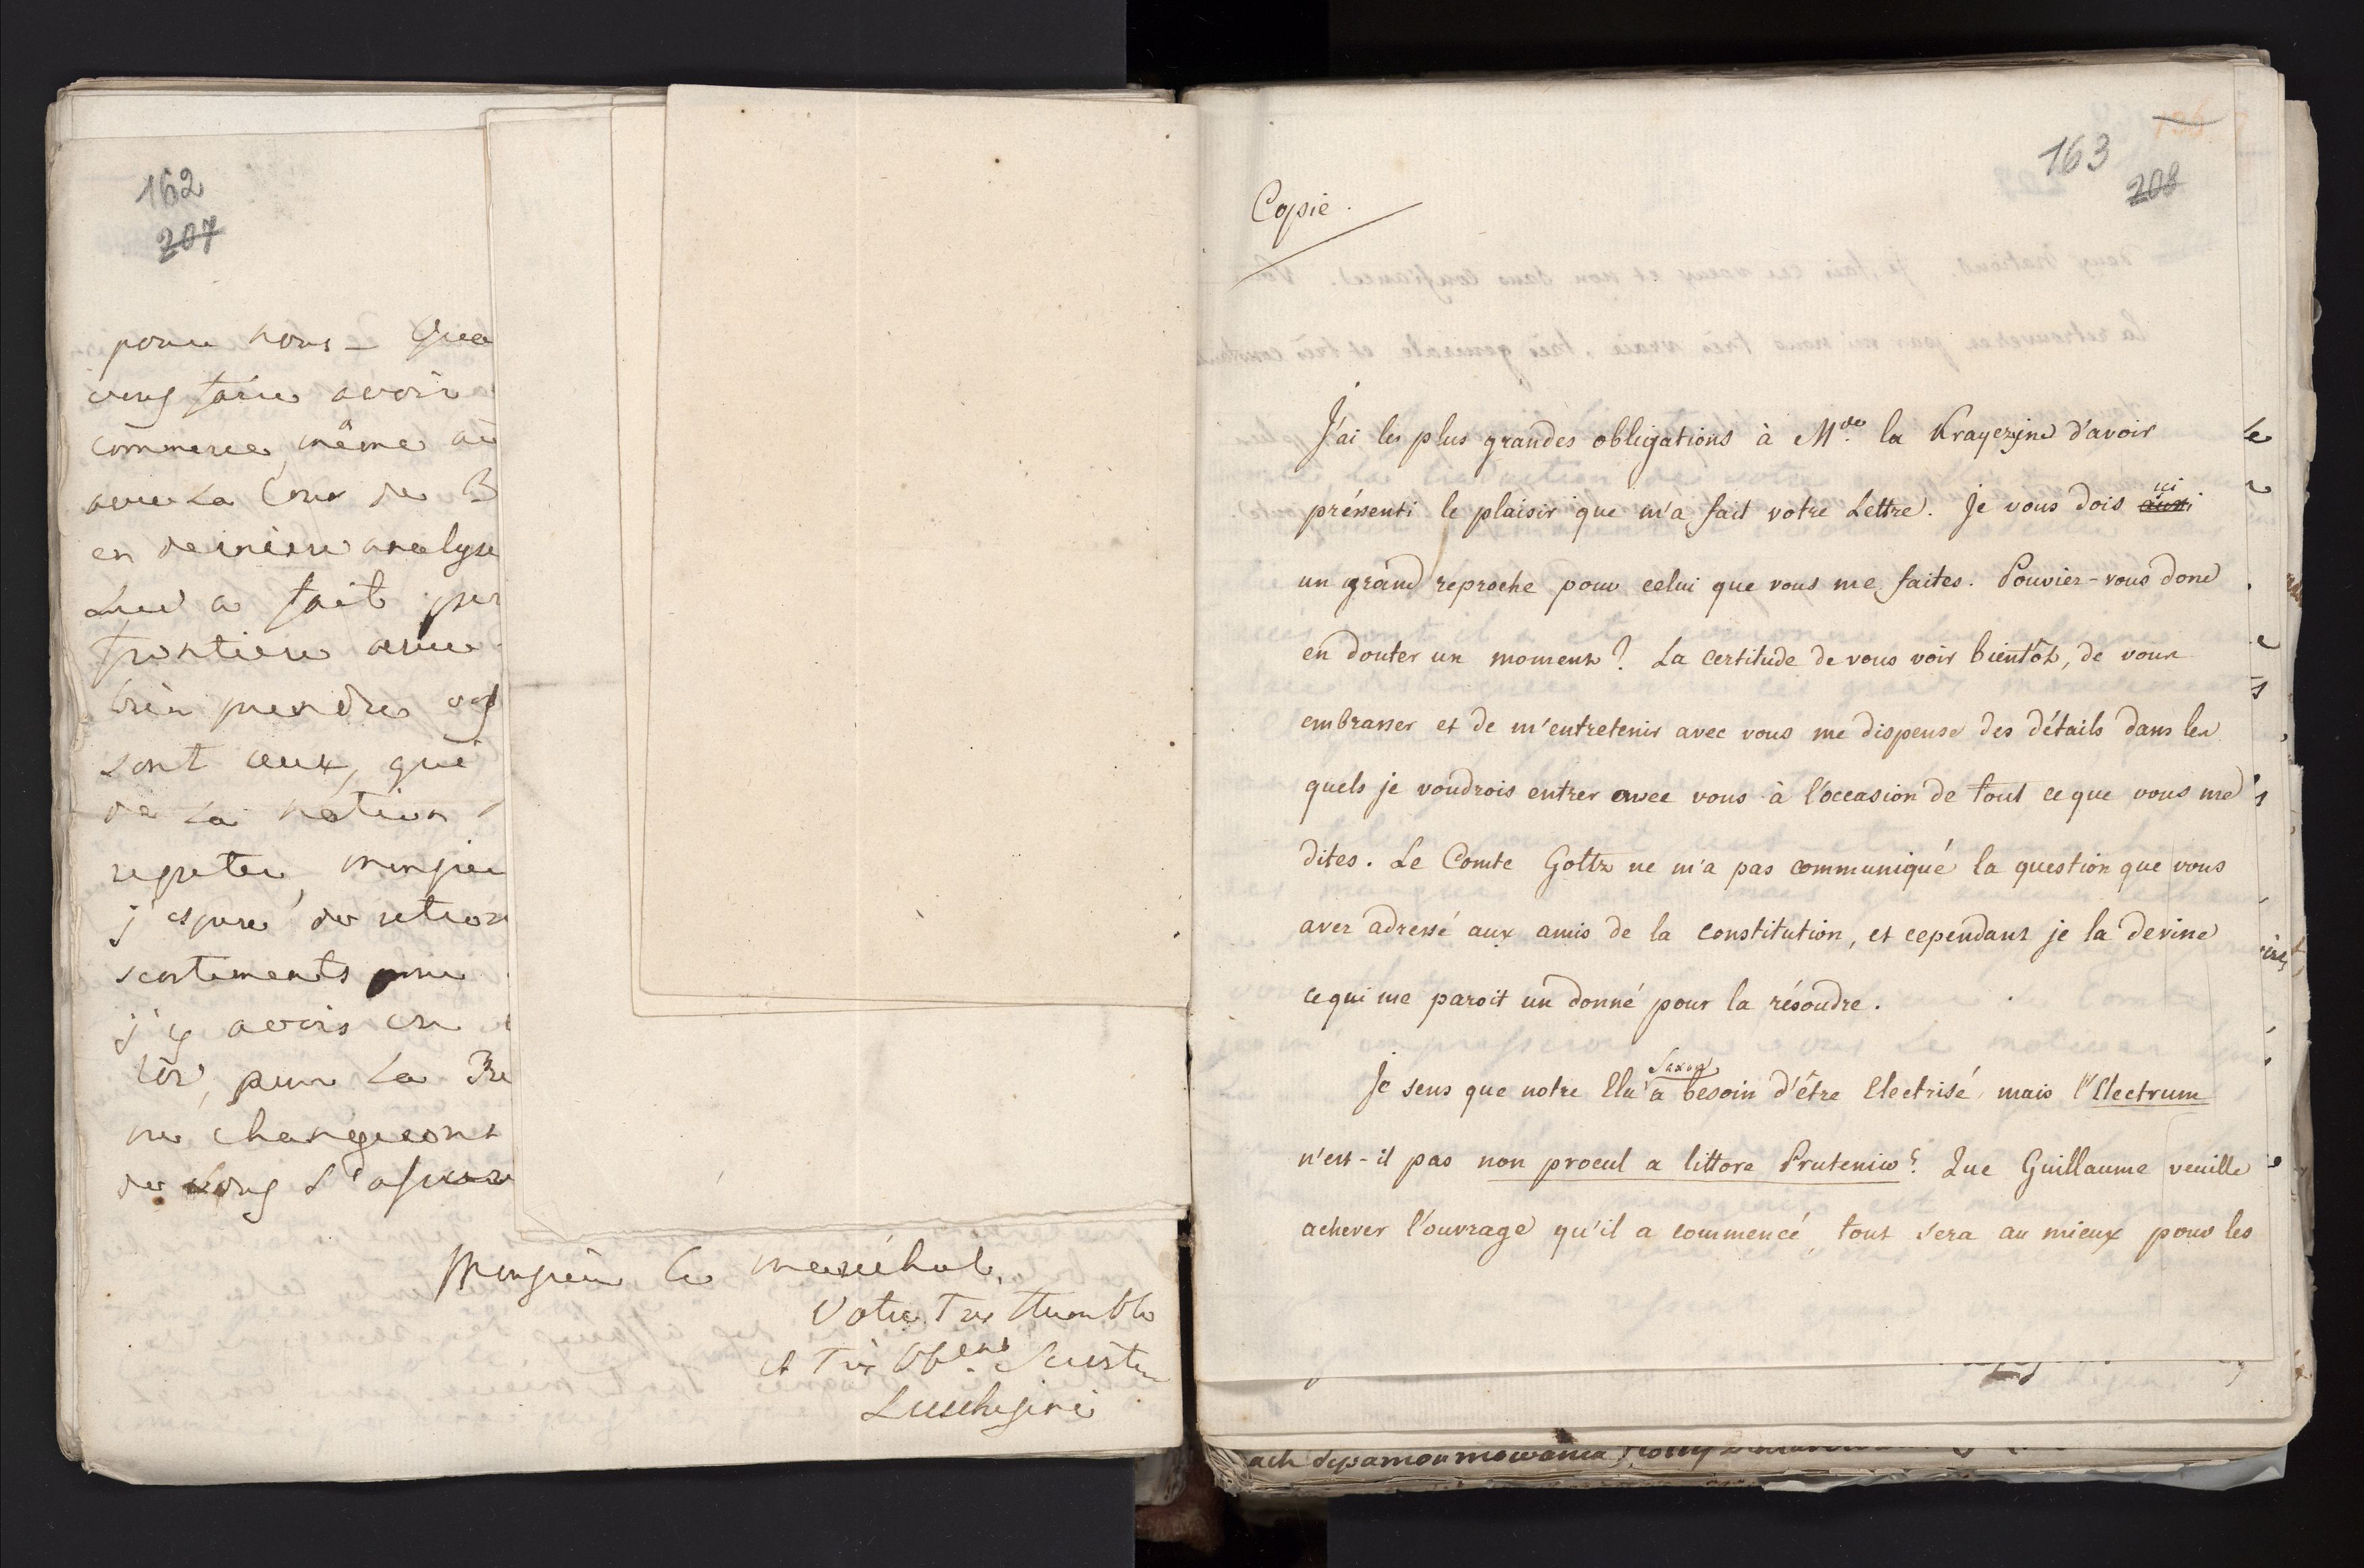 162
207
pour nous – Que
vous faire avoir
commerce, même au
avec La Cour de B
en derniere analyse
Lui a fait per
frontiere avec
bien prendre vos
sont ceux, qui
de La nation
regreter, Monsieur
j'espere de retrou
sentiments pour
j'y avois cru
lor, pour La Re
ne changeront
de vous L'assurer
Monsieur Le marêchal,
Votre Tres Humble
et Très Obent Serviteur
Lucchesini
163
208
Copie.
J'ai les plus grandes obligations à Mde la Krayczyne d'avoir
préssenti le plaisir que m'a fait votre Lettre. Je vous dois aussi ici
un grand reproche pour celui que vous me faites. Pouviez-vous donc
en douter un moment? La certitude de vous voir bientôt, de vous
embrasser et de m'entretenir avec vous me dispense des détails dans les
quels je voudrois entrer avec vous à l'occasion de tout ce que vous me
dites. Le Comte Goltz ne m'a pas communiqué la question que vous
avez adressé aux amis de la constitution, et cependant je la devine
ce qui me paroit un donné pour la résoudre.
Je sens que notre Elu Saxon a besoin d'être Electrisé, mais l'Electrum
n'est-il pas non procul a littore Prutenico? Que Guillaume veuille
achever l'ouvrage qu'il a commencé, tout sera au mieux pour les